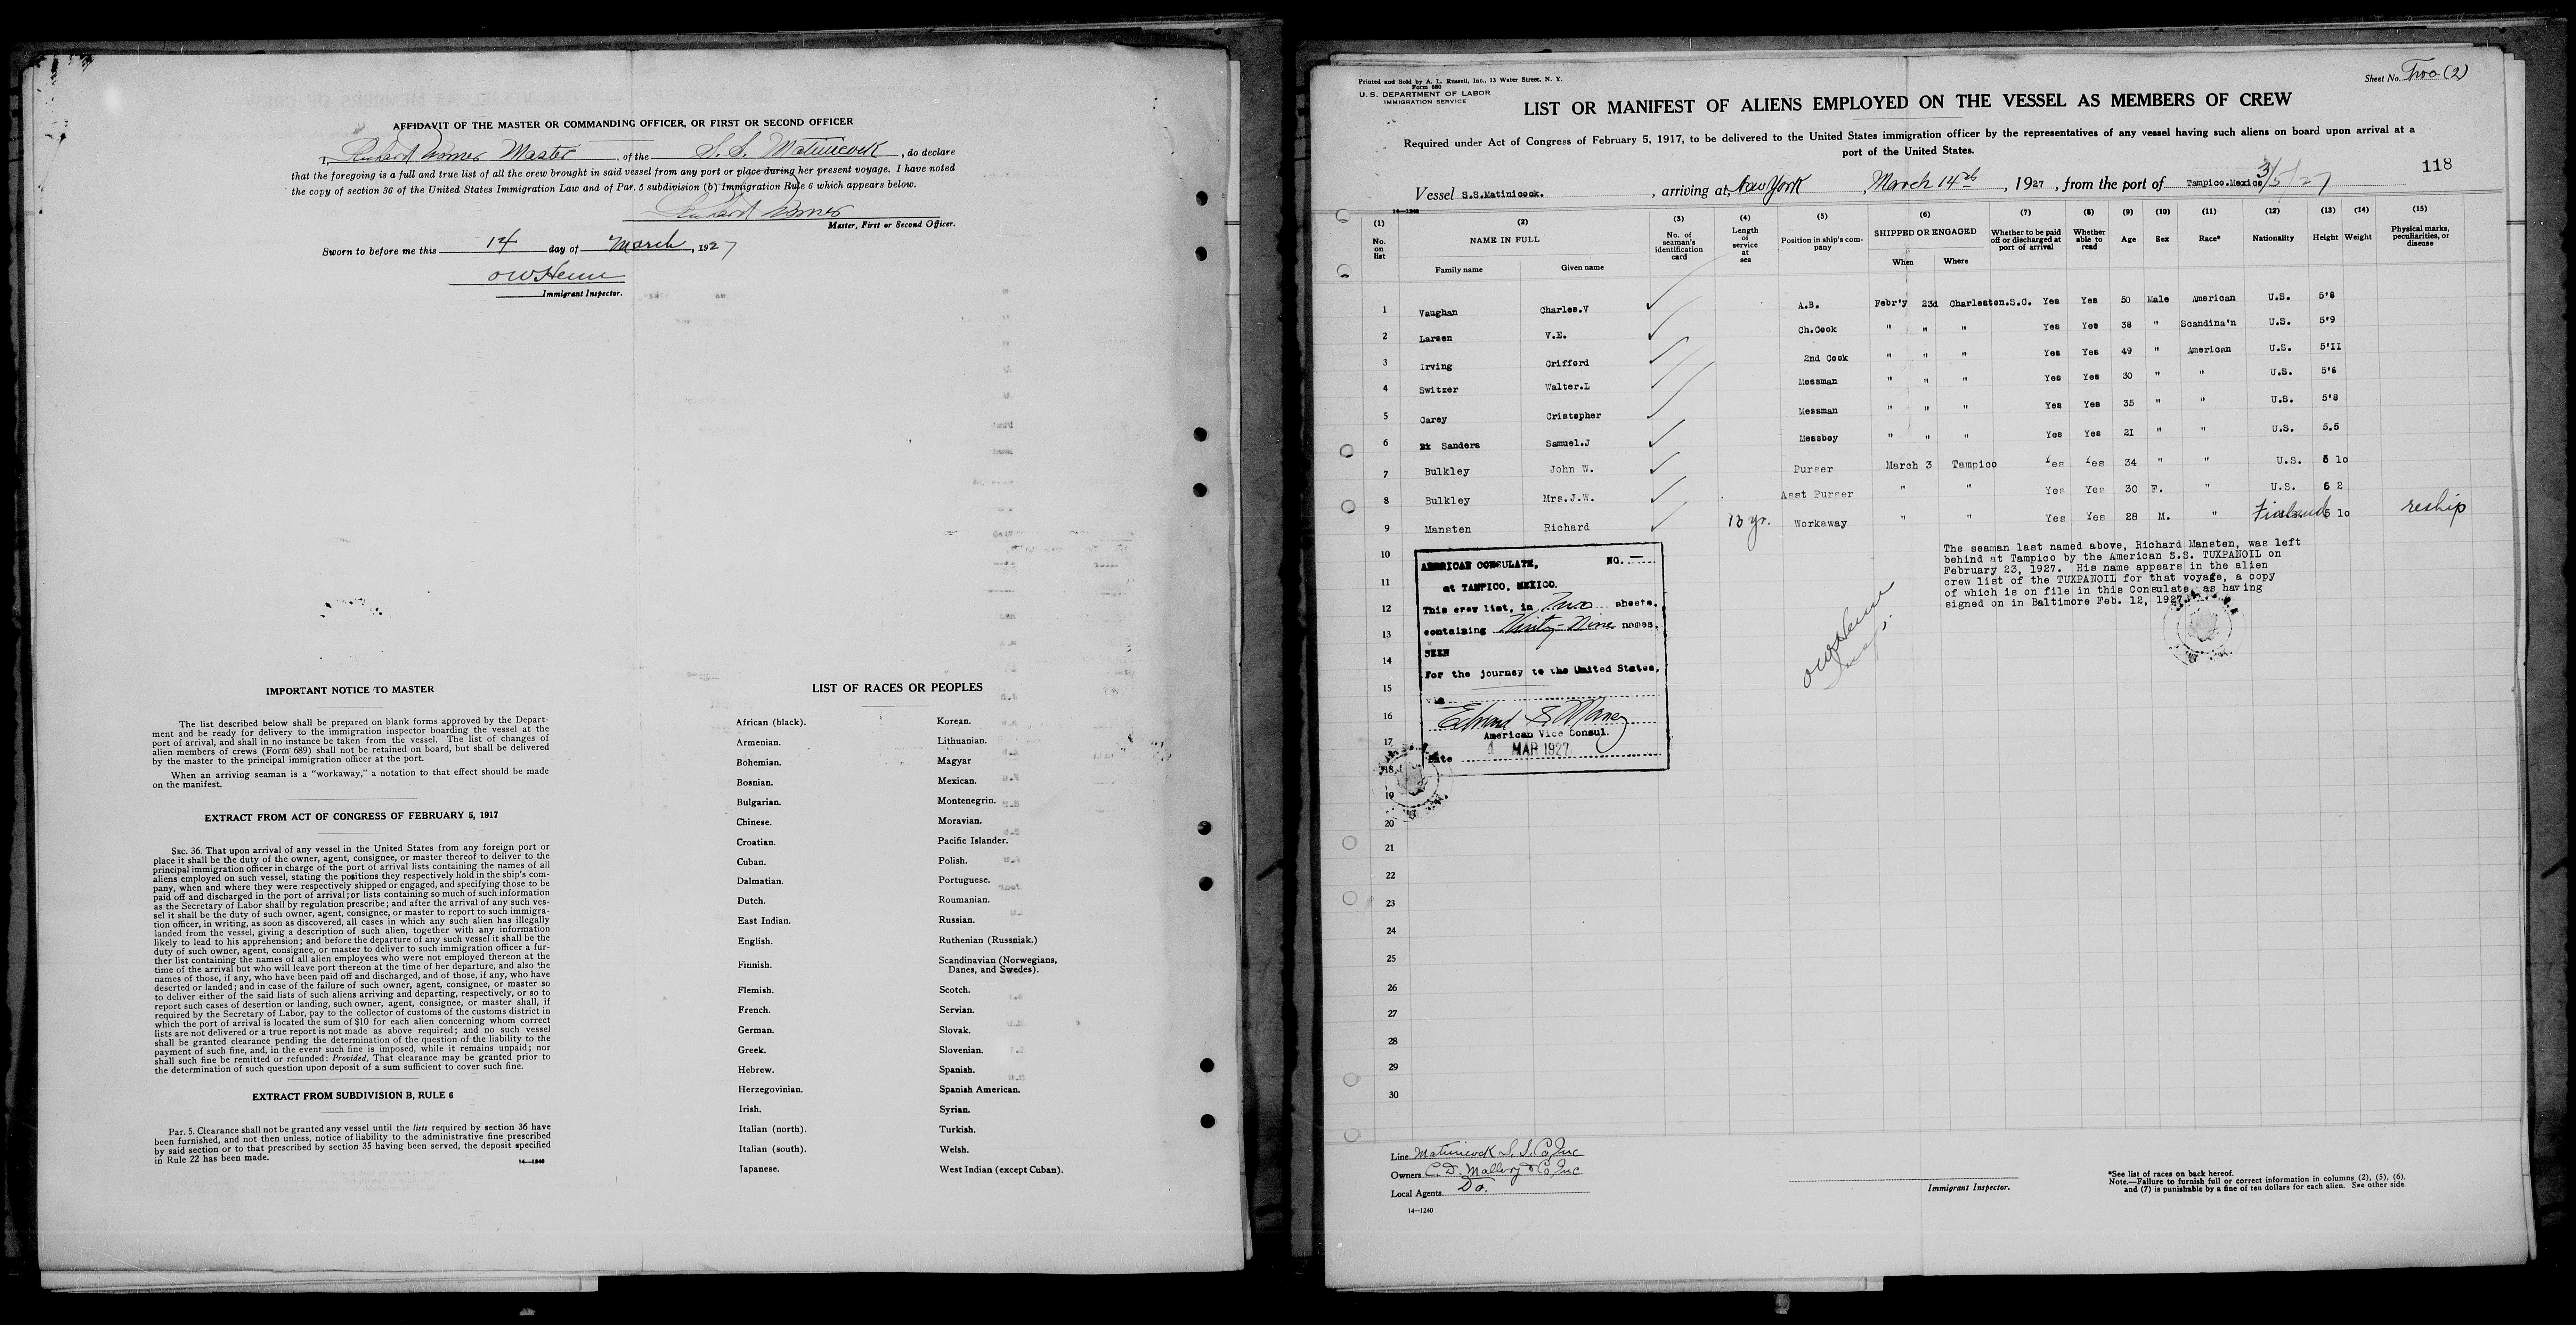 AFFIDAVIT OF THE MASTER OR COMMANDING OFFICER, OR FIRST OR SECOND OFFICER
I, Richard Master, of the S.S. Matinicock, do declare
that the foregoing is a full and true list of all the crew brought in said vessel from any port or place during her present voyage. I have noted
the copy of section 36 of the United States Immigration Law and of Par. 5 subdivision (b) Immigration Rule 6 which appears below.
Richard
Master, First or Second Officer.
Sworn to before me this 14 day of March, 1927
Immigrant Inspector.
IMPORTANT NOTICE TO MASTER
The list described below shall be prepared on blank forms approved by the Depart-
ment and be ready for delivery to the immigration inspector boarding the vessel at the
port of arrival, and shall in no instance be taken from the vessel. The list of changes of
alien members of crews (Form 689) shall not be retained on board, but shall be delivered
by the master to the principal immigration officer at the port.
When an arriving seaman is a "workaway," a notation to that effect should be made
on the manifest.
EXTRACT FROM ACT OF CONGRESS OF FEBRUARY 5, 1917
SEC. 36. That upon arrival of any vessel in the United States from any foreign port or
place it shall be the duty of the owner, agent, consignee, or master thereof to deliver to the
principal immigration officer in charge of the port of arrival lists containing the names of all
aliens employed on such vessel, stating the positions they respectively hold in the ship's com-
pany, when and where they were respectively shipped or engaged, and specifying those to be
paid off and discharged in the port of arrival; or lists containing so much of such information
as the Secretary of Labor shall by regulation prescribe; and after the arrival of any such ves-
sel it shall be the duty of such owner, agent, consignee, or master to report to such immigra-
tion officer, in writing, as soon as discovered, all cases in which any such alien has illegally
landed from the vessel, giving a description of such alien, together with any information
likely to lead to his apprehension; and before the departure of any such vessel it shall be the
duty of such owner, agent, consignee, or master to deliver to such immigration officer a fur-
ther list containing the names of all alien employees who were not employed thereon at the
time of the arrival but who will leave port thereon at the time of her departure, and also the
names of those, if any, who have been paid off and discharged, and of those, if any, who have
deserted or landed; and in case of the failure of such owner, agent, consignee, or master so
to deliver either of the said lists of such aliens arriving and departing, respectively, or so to
report such cases of desertion or landing, such owner, agent, consignee, or master shall, if
required by the Secretary of Labor, pay to the collector of customs of the customs district in
which the port of arrival is located the sum of $10 for each alien concerning whom correct
lists are not delivered or a true report is not made as above required; and no such vessel
shall be granted clearance pending the determination of the question of the liability to the
payment of such fine, and, in the event such fine is imposed, while it remains unpaid; nor
shall such fine be remitted or refunded: Provided, That clearance may be granted prior to
the determination of such question upon deposit of a sum sufficient to cover such fine.
EXTRACT FROM SUBDIVISION B, RULE 6
Par. 5. Clearance shall not be granted any vessel until the lists required by section 36 have
been furnished, and not then unless, notice of liability to the administrative fine prescribed
by said section or to that prescribed by section 35 having been served, the deposit specified
in Rule 22 has been made.
14—1240
LIST OF RACES OR PEOPLES
African (black).
Armenian.
Bohemian.
Bosnian.
Bulgarian.
Chinese.
Croatian.
Cuban.
Dalmatian.
Dutch.
East Indian.
English.
Finnish.
Flemish.
French.
German.
Greek.
Hebrew.
Herzegovinian.
Irish.
Italian (north).
Italian (south).
Japanese.
Korean.
Lithuanian.
Magyar
Mexican.
Montenegrin.
Moravian.
Pacific Islander.
Polish.
Portuguese.
Roumanian.
Russian.
Ruthenian (Russniak.)
Scandinavian (Norwegians,
Danes, and Swedes).
Scotch.
Servian.
Slovak.
Slovenian.
Spanish.
Spanish American.
Syrian.
Turkish.
Welsh.
West Indian (except Cuban).
Printed and Sold by A. L. Russell, Inc., 13 Water Street, N. Y.
Form 680
U. S. DEPARTMENT OF LABOR
IMMIGRATION SERVICE
Sheet No. Two (2)
LIST OR MANIFEST OF ALIENS EMPLOYED ON THE VESSEL AS MEMBERS OF CREW
Required under Act of Congress of February 5, 1917, to be delivered to the United States immigration officer by the representatives of any vessel having such aliens on board upon arrival at a
port of the United States.
118
Vessel S.S.Matinicock., arriving at New York, March 14th, 1927, from the port of Tampico.Mexico 3/5/27
14—1240
(1) (2) (3) (4) (5) (6) (7) (8) (9) (10) (11) (12) (13) (14) (15)
No. on list
NAME IN FULL
Family name Given name
No. of seaman's identification card
Length of service at sea
Position in ship's company
SHIPPED OR ENGAGED
When Where
Whether to be paid off or discharged at port of arrival
Whether able to read
Age Sex Race* Nationality Height Weight
Physical marks, peculiarities, or disease
1 Vaughan Charles.V A.B. Febr'y 23d Charleston.S.C. Yes Yes 50 Male American U.S. 5'8
2 Larsen V.E. Ch.Cook " " " Yes Yes 38 " Scandina'n U.S. 5'9
3 Irving Crifford 2nd Cook " " " Yes Yes 49 " American U.S. 5'II
4 Switzer Walter.L Messman " " " Yes Yes 30 " " U.S. 5'6
5 Carey Cristopher Messman " " " Yes Yes 35 " " U.S. 5'8
6 Sanders Samuel.J Messboy " " " Yes Yes 2I " " U.S. 5.5
7 Bulkley John W. Purser March 3 Tampico Yes Yes 34 " " U.S. 5 10
8 Bulkley Mrs.J.W. Asst Purser " " Yes Yes 30 F. " U.S. 5 2
9 Mansten Richard 10 yr. Workaway " " Yes Yes 28 M. " Finland 5 10 reship
10
11
12
13
14
15
16
17
18
19
20
21
22
23
24
25
26
27
28
29
30
The seaman last named above, Richard Mansten, was left
behind at Tampico by the American S.S. TUXPANOIL on
February 23, 1927. His name appears in the alien
crew list of the TUXPANOIL for that voyage, a copy
of which is on file in this Consulate, as having
signed on in Baltimore Feb. 12, 1927.
AMERICAN CONSULATE, NO. —
at TAMPICO, MEXICO.
This crew list, in Two sheets,
containing Thirty-Nine names.
SEEN
For the journey to the United States,
via
Edward S. Maney
American Vice Consul.
Date 4 MAR 1927
Line Matinicock S.S. Co. Inc
Owners C. D. Mallory & Co, Inc
Local Agents Do.
14—1240
Immigrant Inspector.
*See list of races on back hereof.
Note.—Failure to furnish full or correct information in columns (2), (5), (6),
and (7) is punishable by a fine of ten dollars for each alien. See other side.